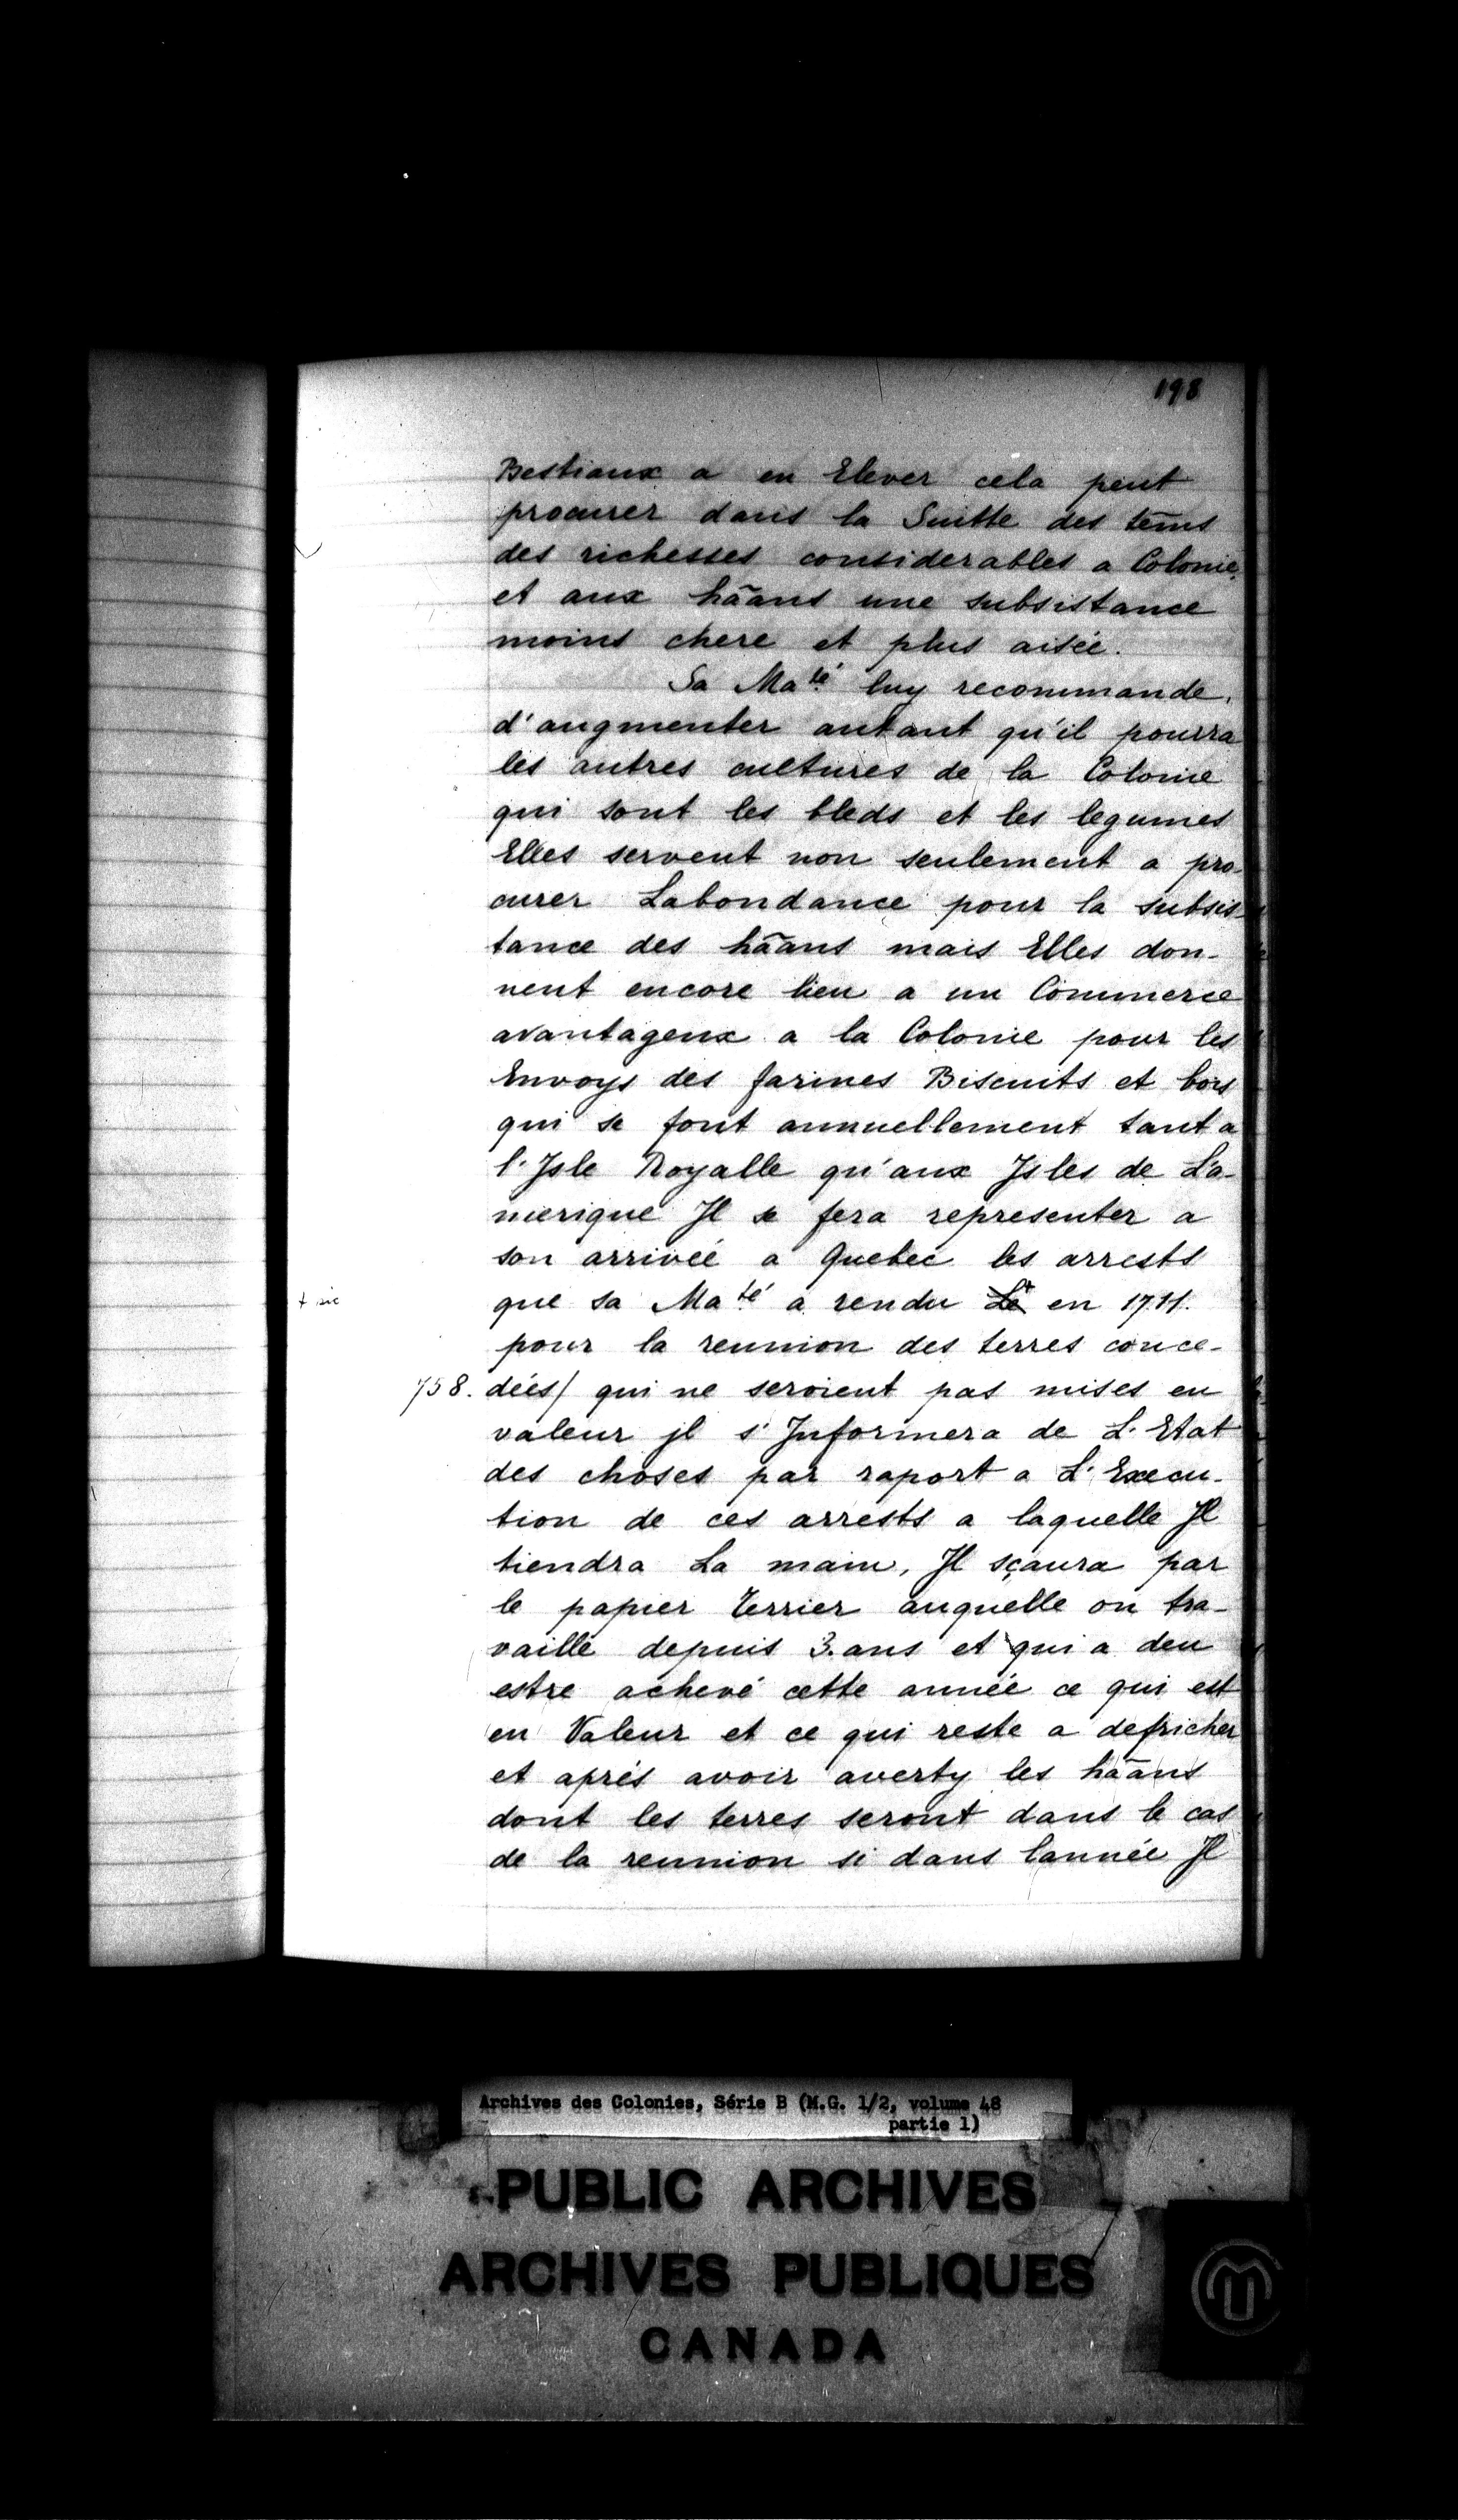 198
Bestiaux a en Elever cela peut
procurer dans la Suitte des tem̃s
des richesses considerables a Colonie,
et aux hãans une subsistance
moins chere et plus aisée.
Sa Ma.té luy recommande,
d'augmenter autant qu'il pourra
les autres cultures de la Colonie
qui sont les bleds et les legumes
Elles servent non seulement a pro-
curer Labondance pour la subsis-
tance des hãans mais Elles don-
nent encore lieu a un Commerce
avantageux a la Colonie pour les
Envoys des farines Biscuits et bois
qui se font annuellement tant a
l'Isle Royalle qu'aux Isles de L'a-
merique Il se fera representer a
son arrivée a Quebec les arrests
+ sic
que sa Ma.té a rendu Le+ en 1711.
pour la reunion des terres conce-
758. dées/ qui ne seroient pas mises en
valeur jl s'Informera de L'Etat
des choses par raport a L'Execu-
tion de ces arrests a laquelle Il
tiendra La main, Il sçaura par
le papier terrier auquelle on tra-
vaille depuis 3. ans et qui a deu
estre achevé cette année ce qui est
en Valeur et ce qui reste a defricher
et aprés avoir averty les hãans
dont les terres seront dans le cas
de la reunion si dans lannée Il
Archives des Colonies, Série B (M.G. 1/2, volume 48
partie 1)
PUBLIC ARCHIVES
ARCHIVES PUBLIQUES
CANADA